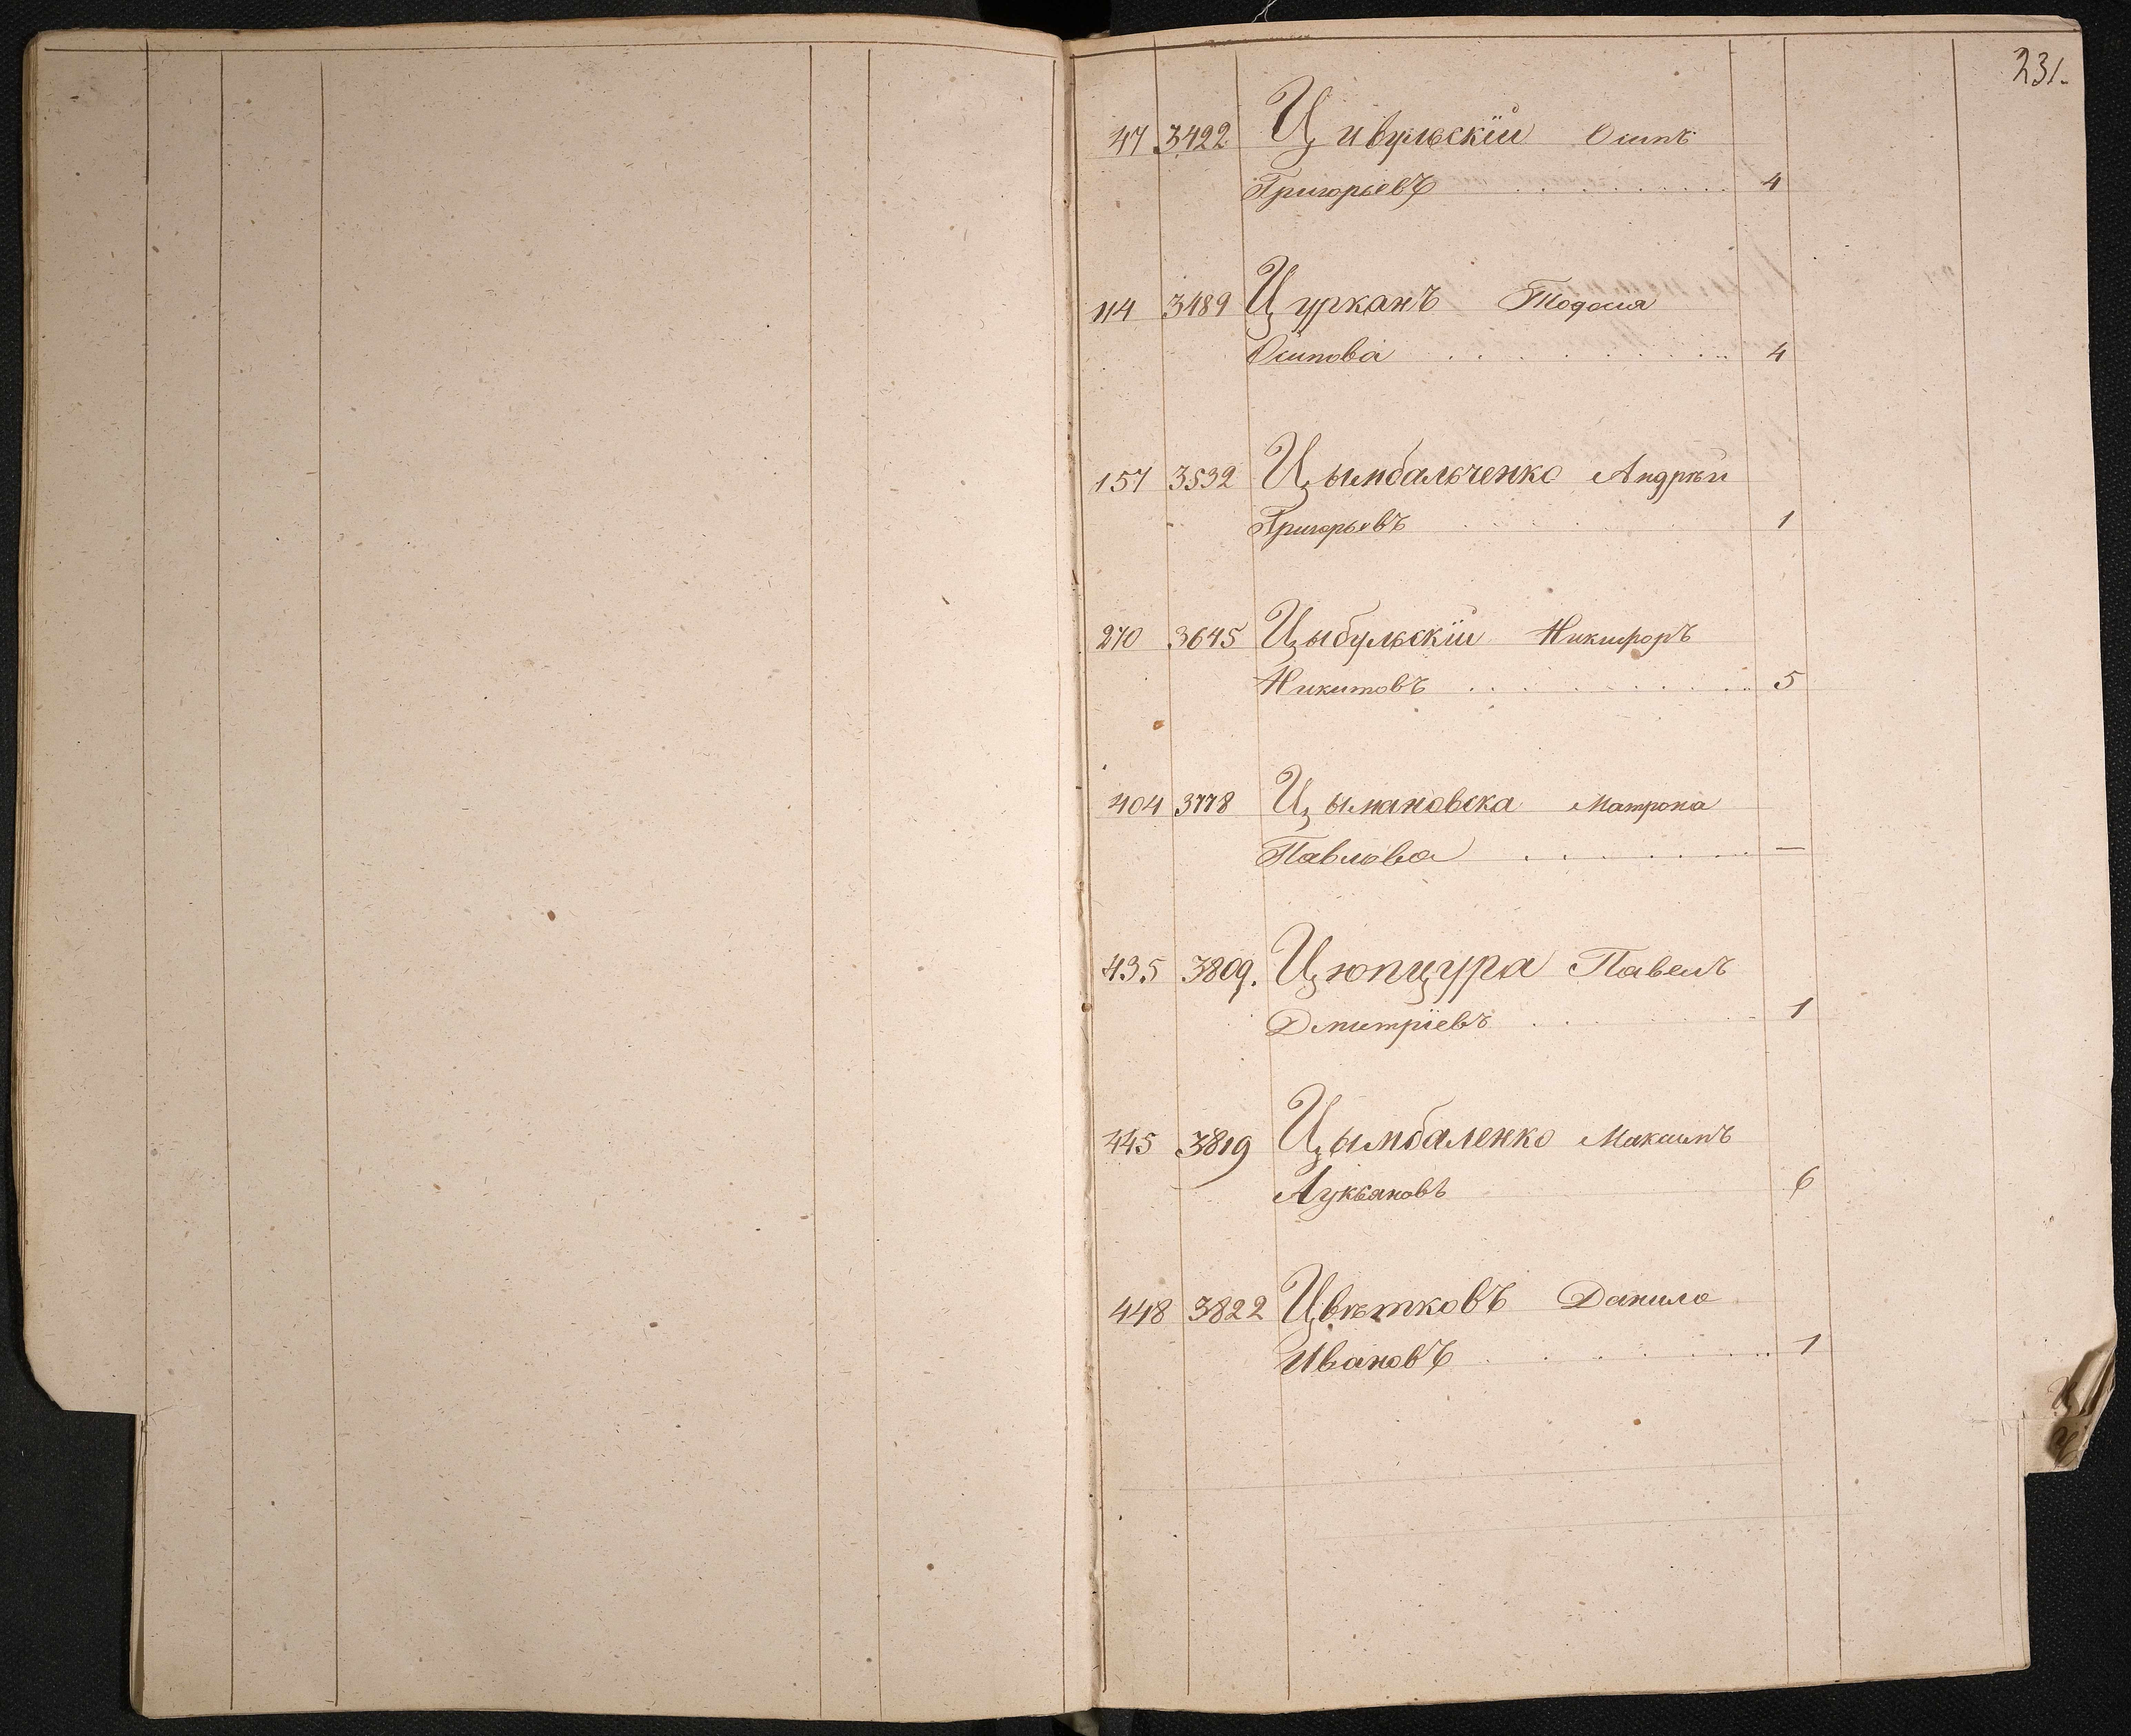 231.
47 3422 Цивульскій Осипъ
Григорьевъ 4
114 3489 Цурканъ Тодосія
Осипова 4
157 3532 Цымбальченко Андрѣй
Григорьевъ 1
270 3645 Цыбульскій Никифоръ
Никитовъ 5
404 3778 Цымановска Матрона
Павлова —
435 3809. Цюпцура Павелъ
Дмитріевъ 1
445 3819 Цымбаленко Максимъ
Лукьяновъ 6
448 3822 Цвѣтковъ Данило
Ивановъ 1
Ц